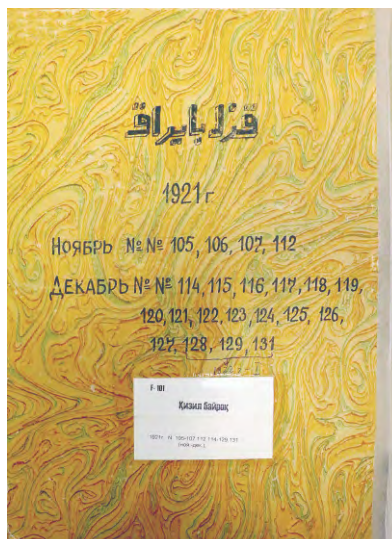 قزل بايراق
1921 г
НОЯБРЬ №№ 105, 106, 107, 112
ДЕКАБРЬ №№ 114, 115, 116, 117, 118, 119,
120, 121, 122, 123, 124, 125, 126,
127, 128, 129, 131
F-101
Қизил байроқ
1921г. N 105-107,112,114-129,131
(ноя-дек.)